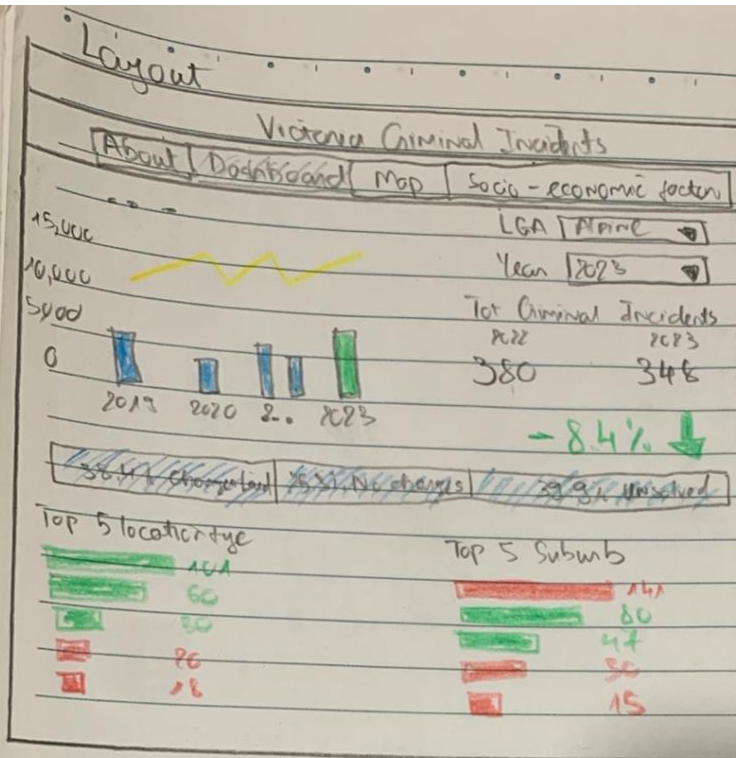 Layout
Victoria Criminal Incidents
About Dashboard Map Socio-economic factors
LGA Alpine
Year 2023
15,000
10,000
5000
0
2019 2020 2.. 2023
Tot Criminal Incidents
2022 2023
380 348
- 8.4%
No charges 39.9% unsolved
Top 5 location type
101
60
30
26
18
Top 5 Suburb
141
80
47
30
15